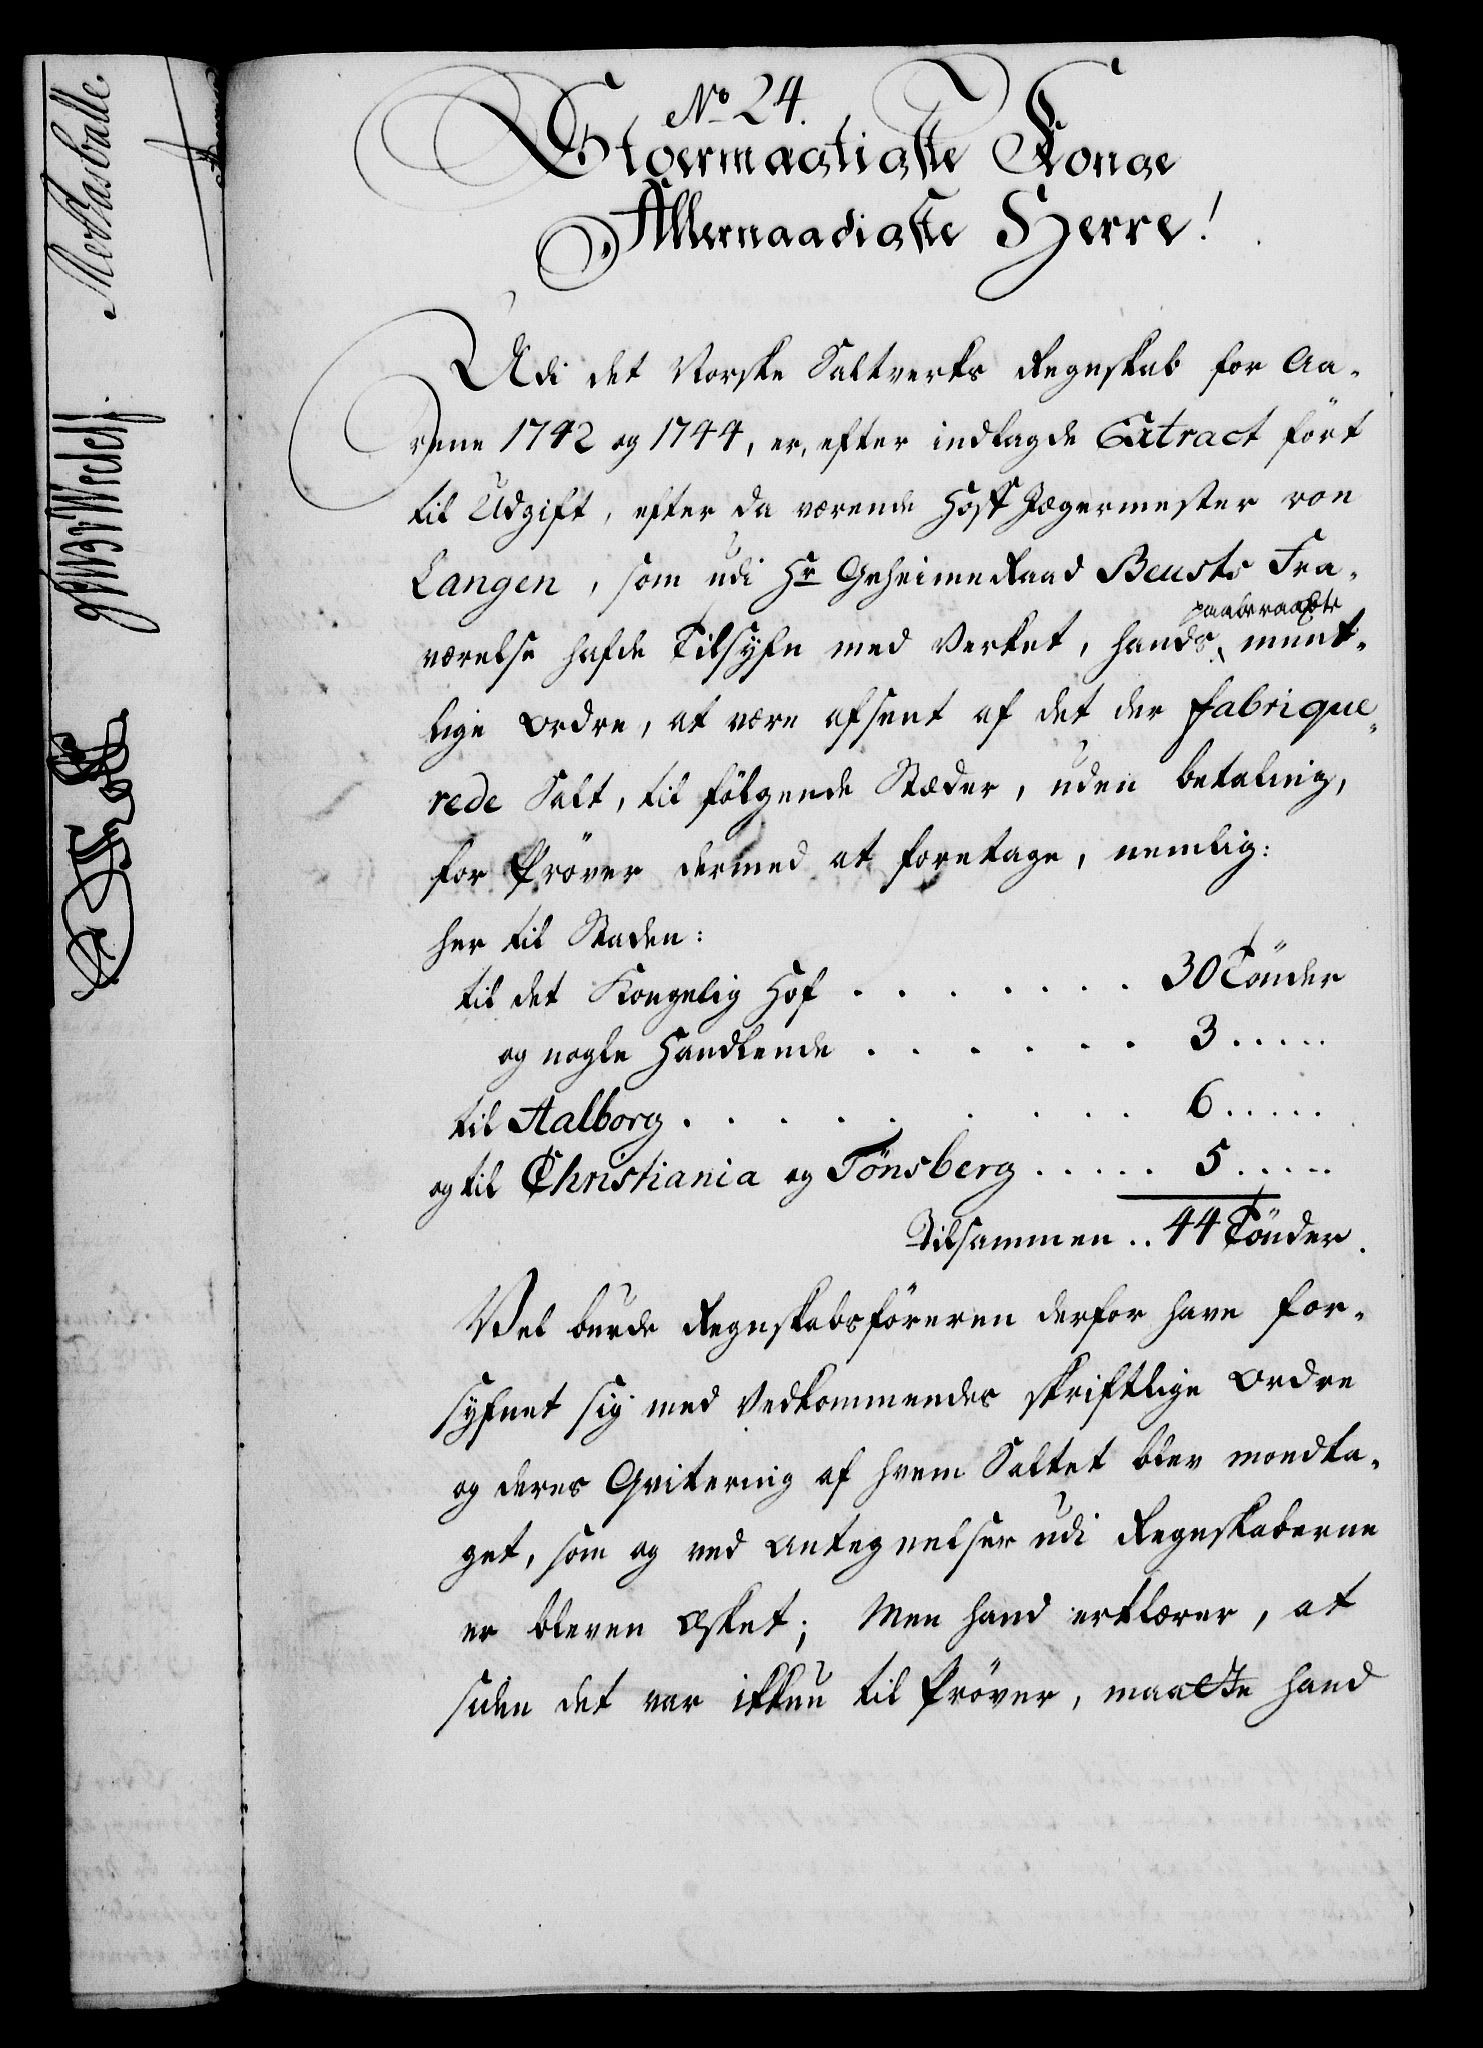 No 24.
Stormægtigste Konge
Allernaadigste Herre!
Udi det Norske Saltverks Regnskab for Aa-
rene 1742 og 1744, er, efter indtagde Extract fört
til Udgift, efter da værende Hoff Jægermester von
Langen, som udi Hr Geheime Raad Beusts Fra-
paaberaabte
værelse hafde Tilsyfn med Verket, hands, munt-
lige Ordre, at være afsent af det der fabrique-
rede Salt, til fölgende Stæder, uden betaling,
for Pröver dermed at foretage, nemlig:
her til Staden:
til det Kongelig Hof . . . . . . . 30 Tönder
og nogle Handlende . . . . . . 3 . . . . .
til Aalborg . . . . . . . . . . 6 . . . . .
og til Christiania og Tönsberg . . . . . 5 . . . . .
Tilsammen .. 44 Tönder.
Vel burde Regnskabsföreren derfor have for-
syfnet sig med Vedkommendes skriftlige Ordre
og deres Qvitering af hvem Saltet blev modta-
get, som og ved Antegnelser udi Regnskaberne
er bleven Æsket; Men hand erklærer, at
siden det var ikkun til Pröver, maatte hand